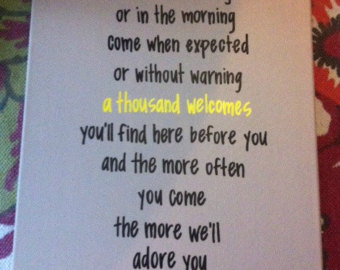 or in the morning
come when expected
or without warning
a thousand welcomes
you'll find here before you
and the more often
you come
the more we'll
adore you